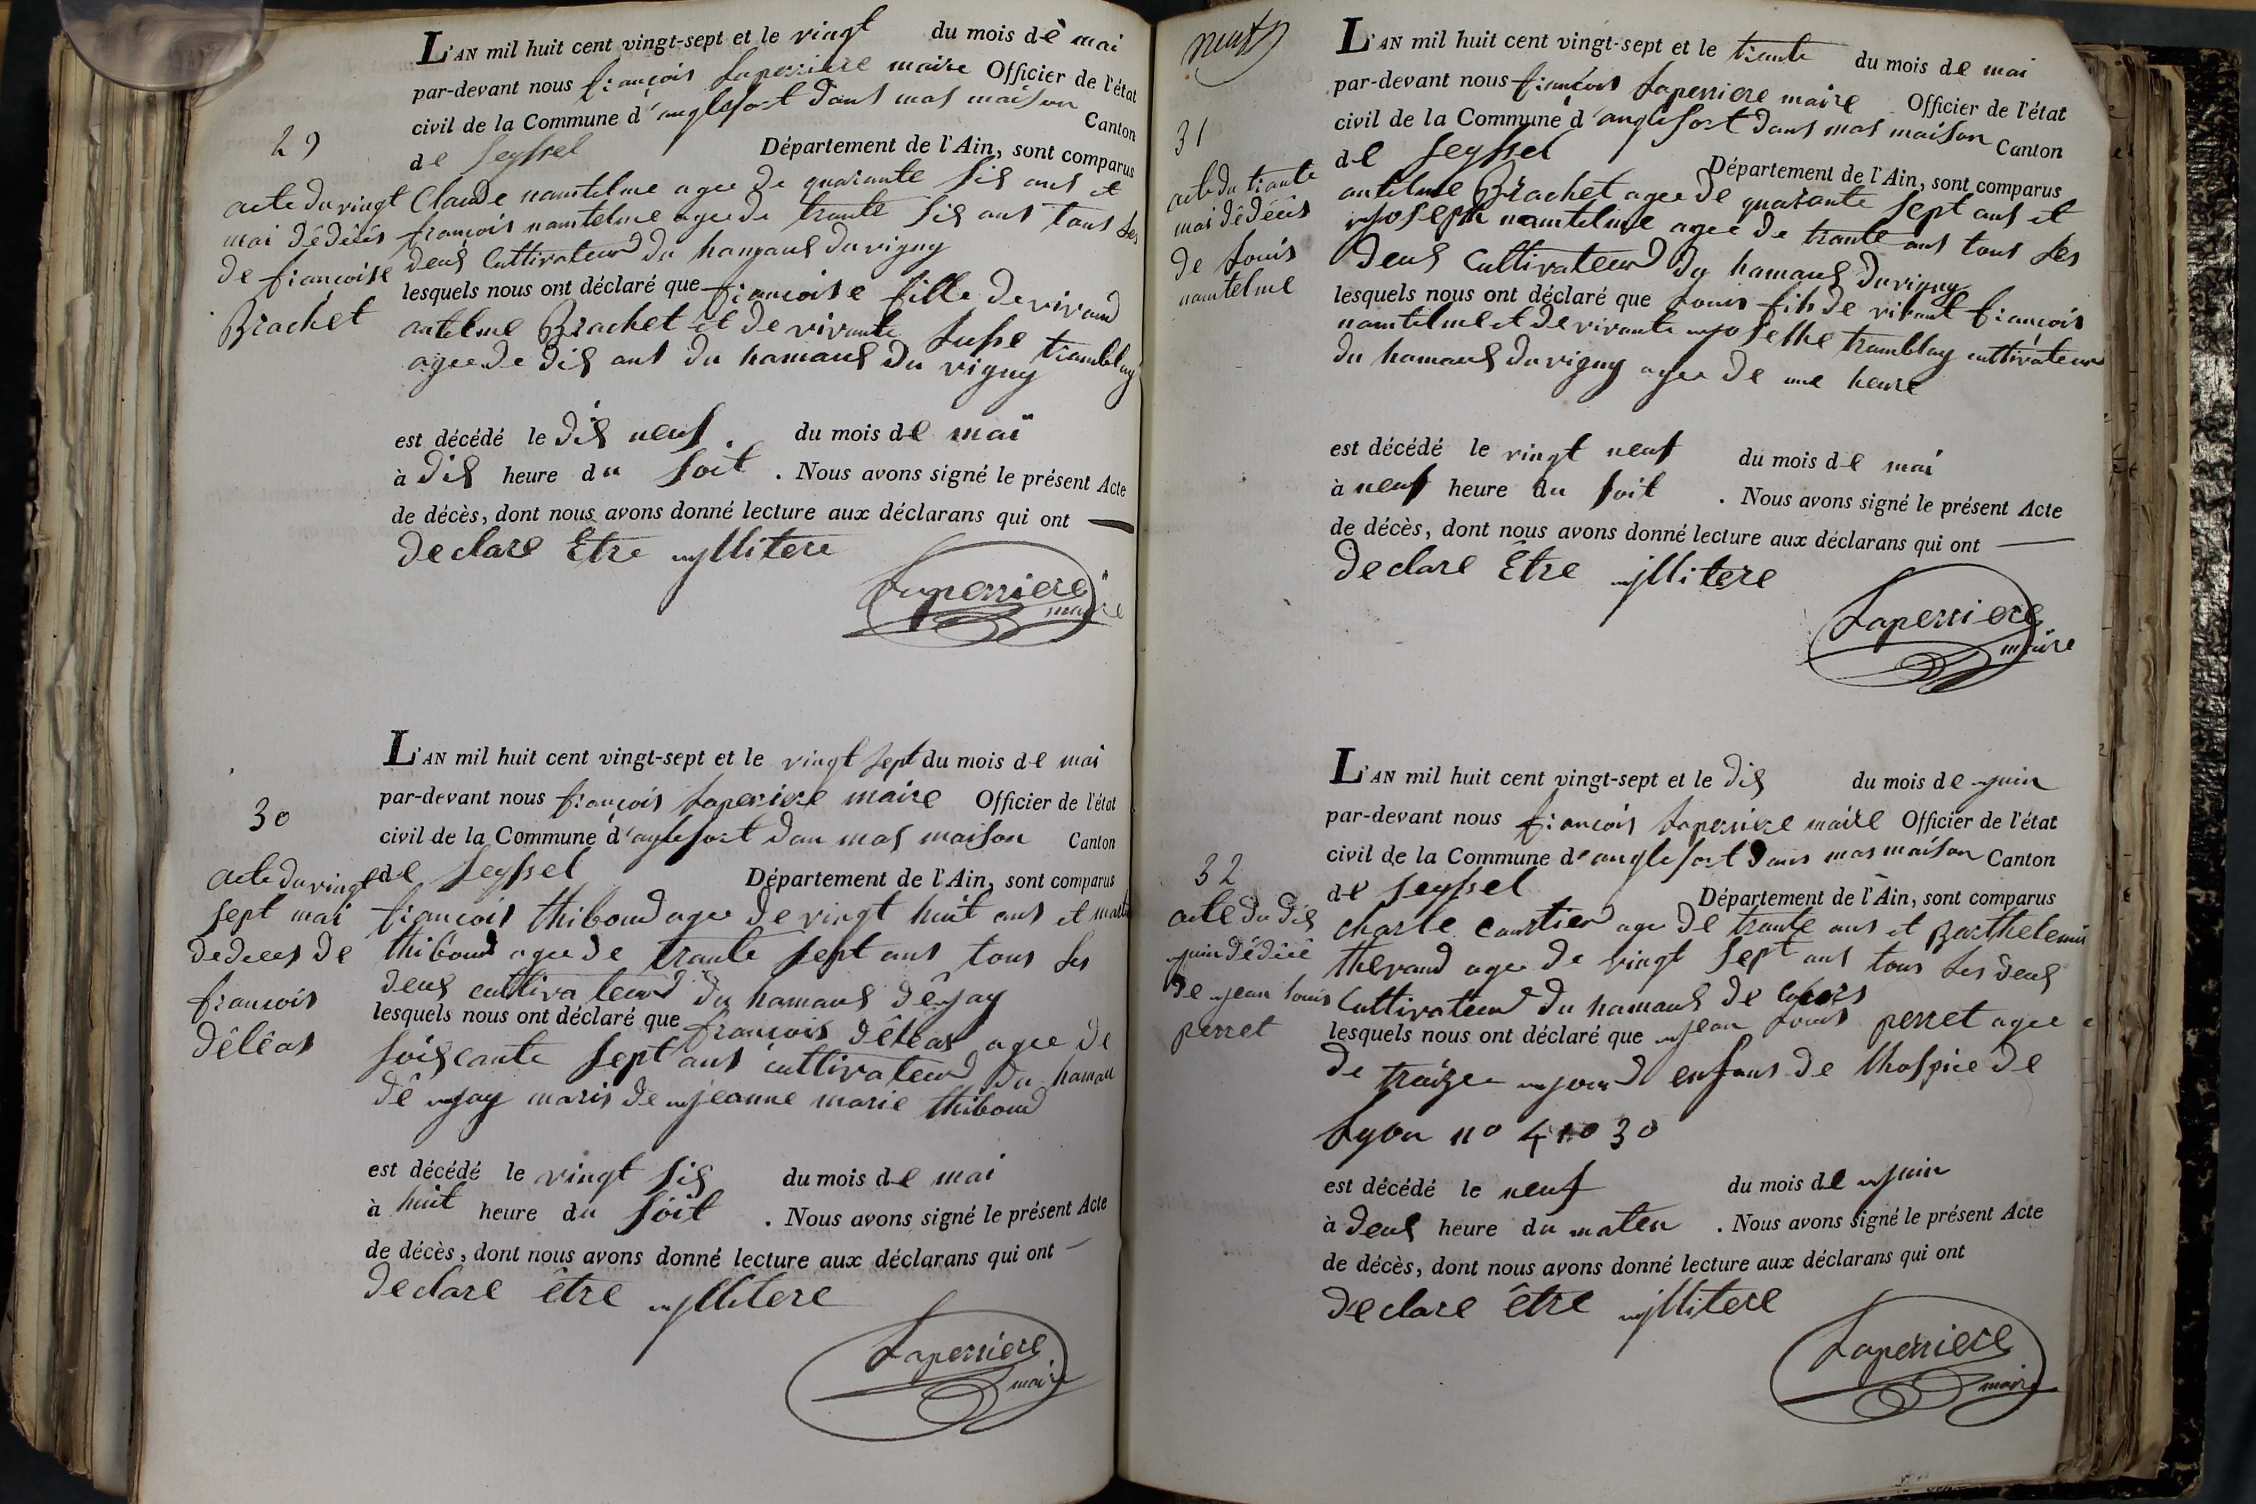 L'AN mil huit cent vingt-sept et le vingt du mois dè mai
par-devant nous françois Laperriere maire Officier de l'état
civil de la Commune d'anglefort dans mas maison Canton
de Seyssel Département de l'Ain, sont comparus
29
acte du vingt
mai dêdêcès
de françoise
Brachet
Claude namtelme agee de quarante sis ans et
françois namtelme agee de trante sis ans tous les
deus Cultivateur du hamaus du vigny
lesquels nous ont déclaré que françoise fille de vivand
antelme Brachet et de vivante tramblay
agee de dis ans du hamaus du vigny
est décédé le dis neuf. du mois de mai
à dis heure du soit. Nous avons signé le présent Acte
de décès, dont nous avons donné lecture aux déclarans qui ont
declare Être jllitere
Laperriere
maire
L'AN mil huit cent vingt-sept et le vingt sept du mois de mai
par-devant nous françois Laperriere maire Officier de l'état
civil de la Commune d'anglefort dan mas maison Canton
de Seyssel Département de l'Ain, sont comparus
30
acte du vingt
sept mai
dedeces de
françois
dêlêas
françois thiboud agee de vingt huit ans et
thiboud agee de trante sept ans tous les
deus cultivateur du hamaus dê jay
lesquels nous ont déclaré que françois dêlêas agee de
soiscante sept ans cultivateur du hamau
dê jay maris de jeanne marie thiboud
est décédé le vingt sis du mois de mai
à huit heure du soit. Nous avons signé le présent Acte
de décès, dont nous avons donné lecture aux déclarans qui ont
declare être jllitere
Laperriere
maire
neuf
L'AN mil huit cent vingt-sept et le trante du mois de mai
par-devant nous françois Laperriere maire Officier de l'état
civil de la Commune d'anglefort dans mas maison Canton
de Seyssel Département de l'Ain, sont comparus
31
acte du trante
mai dêdécès
de Louis
namtelme
antelme Brachet agee de quarante sept ans et
joseph namtelme agee de trante ans tous les
deus Cultivateur du hamaus du vigny
lesquels nous ont déclaré que Louis fils de vivant françois
namtelme et de vivante josethe tramblay cultivateur
du hamaus du vigny agee de une heure
est décédé le vingt neuf du mois de mai
à neuf heure du soit. Nous avons signé le présent Acte
de décès, dont nous avons donné lecture aux déclarans qui ont
declare Être jllitere
Laperriere
maire
L'AN mil huit cent vingt-sept et le dis du mois de juin
par-devant nous françois Laperriere maire Officier de l'état
civil de la Commune d'anglefort dans mas maison Canton
de Seyssel Département de l'Ain, sont comparus
32
acte du dis
juin dédécê
de jean louis
perret
charle age de trante ans et Barthelemis
thevand agee de vingt sept ans tous les deus
Cultivateur du hamaus de
lesquels nous ont déclaré que jean Louis perret agee
de traize jour enfans de lhospice de
Lyon n° 41030
est décédé le neuf du mois de juin
à deus heure du maten. Nous avons signé le présent Acte
de décès, dont nous avons donné lecture aux déclarans qui ont
declare être jllitere
Laperriere
maire